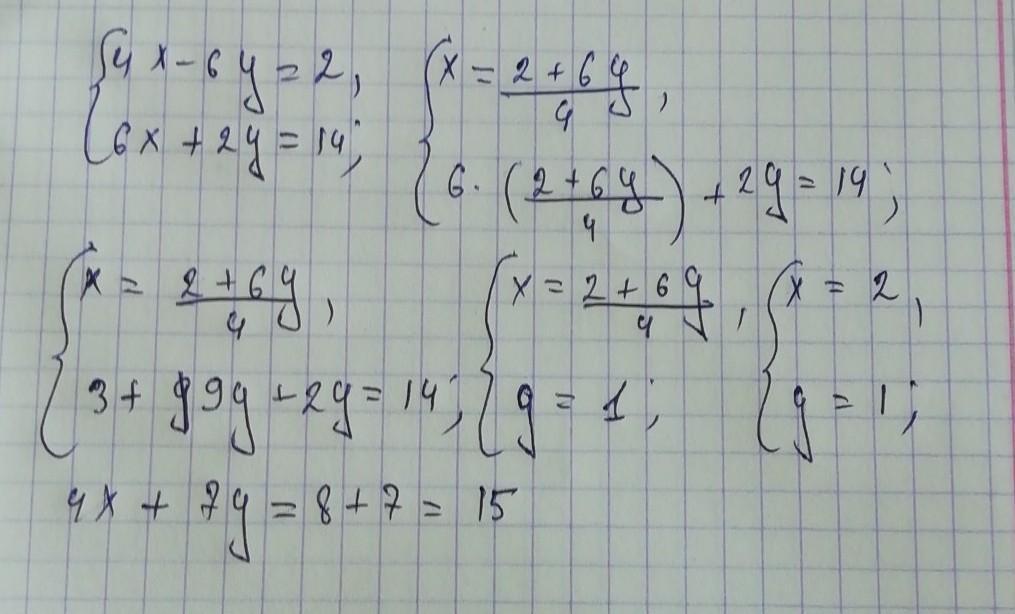 {4x - 6y = 2, 6x + 2y = 14;
{x = (2 + 6y)/4, 6 · ((2 + 6y)/4) + 2y = 14;
{x = (2 + 6y)/4, 3 + 9y + 2y = 14;
{x = (2 + 6y)/4, y = 1;
{x = 2, y = 1;
4x + 7y = 8 + 7 = 15